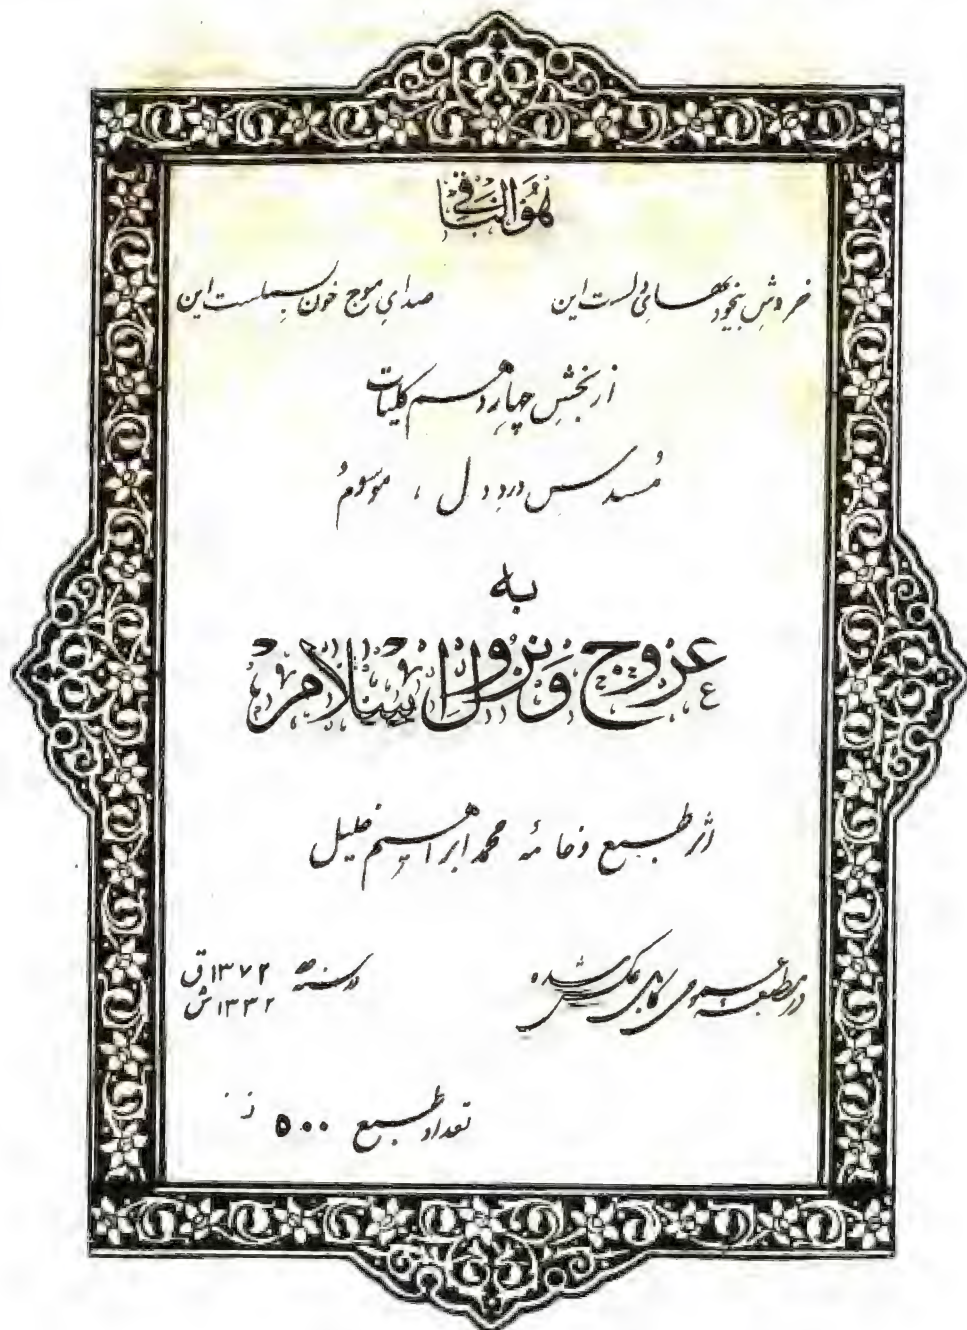 هُوَ الباقی
خروشِ بیخودیهای دلست این صدایِ موجِ خونِ بسملست این
از بخشِ چهاردهم کلیات
مُسدسِ دردِ دل ، موسومُ
به
عروج و نزول اسلام
اثر طبع و خامهٔ محمد ابراهیم خلیل
در مطبعهٔ عمومی کابل عکس شده در سنه ۱۳۷۲ ق
۱۳۳۲ ش
تعداد طبع ۵۰۰